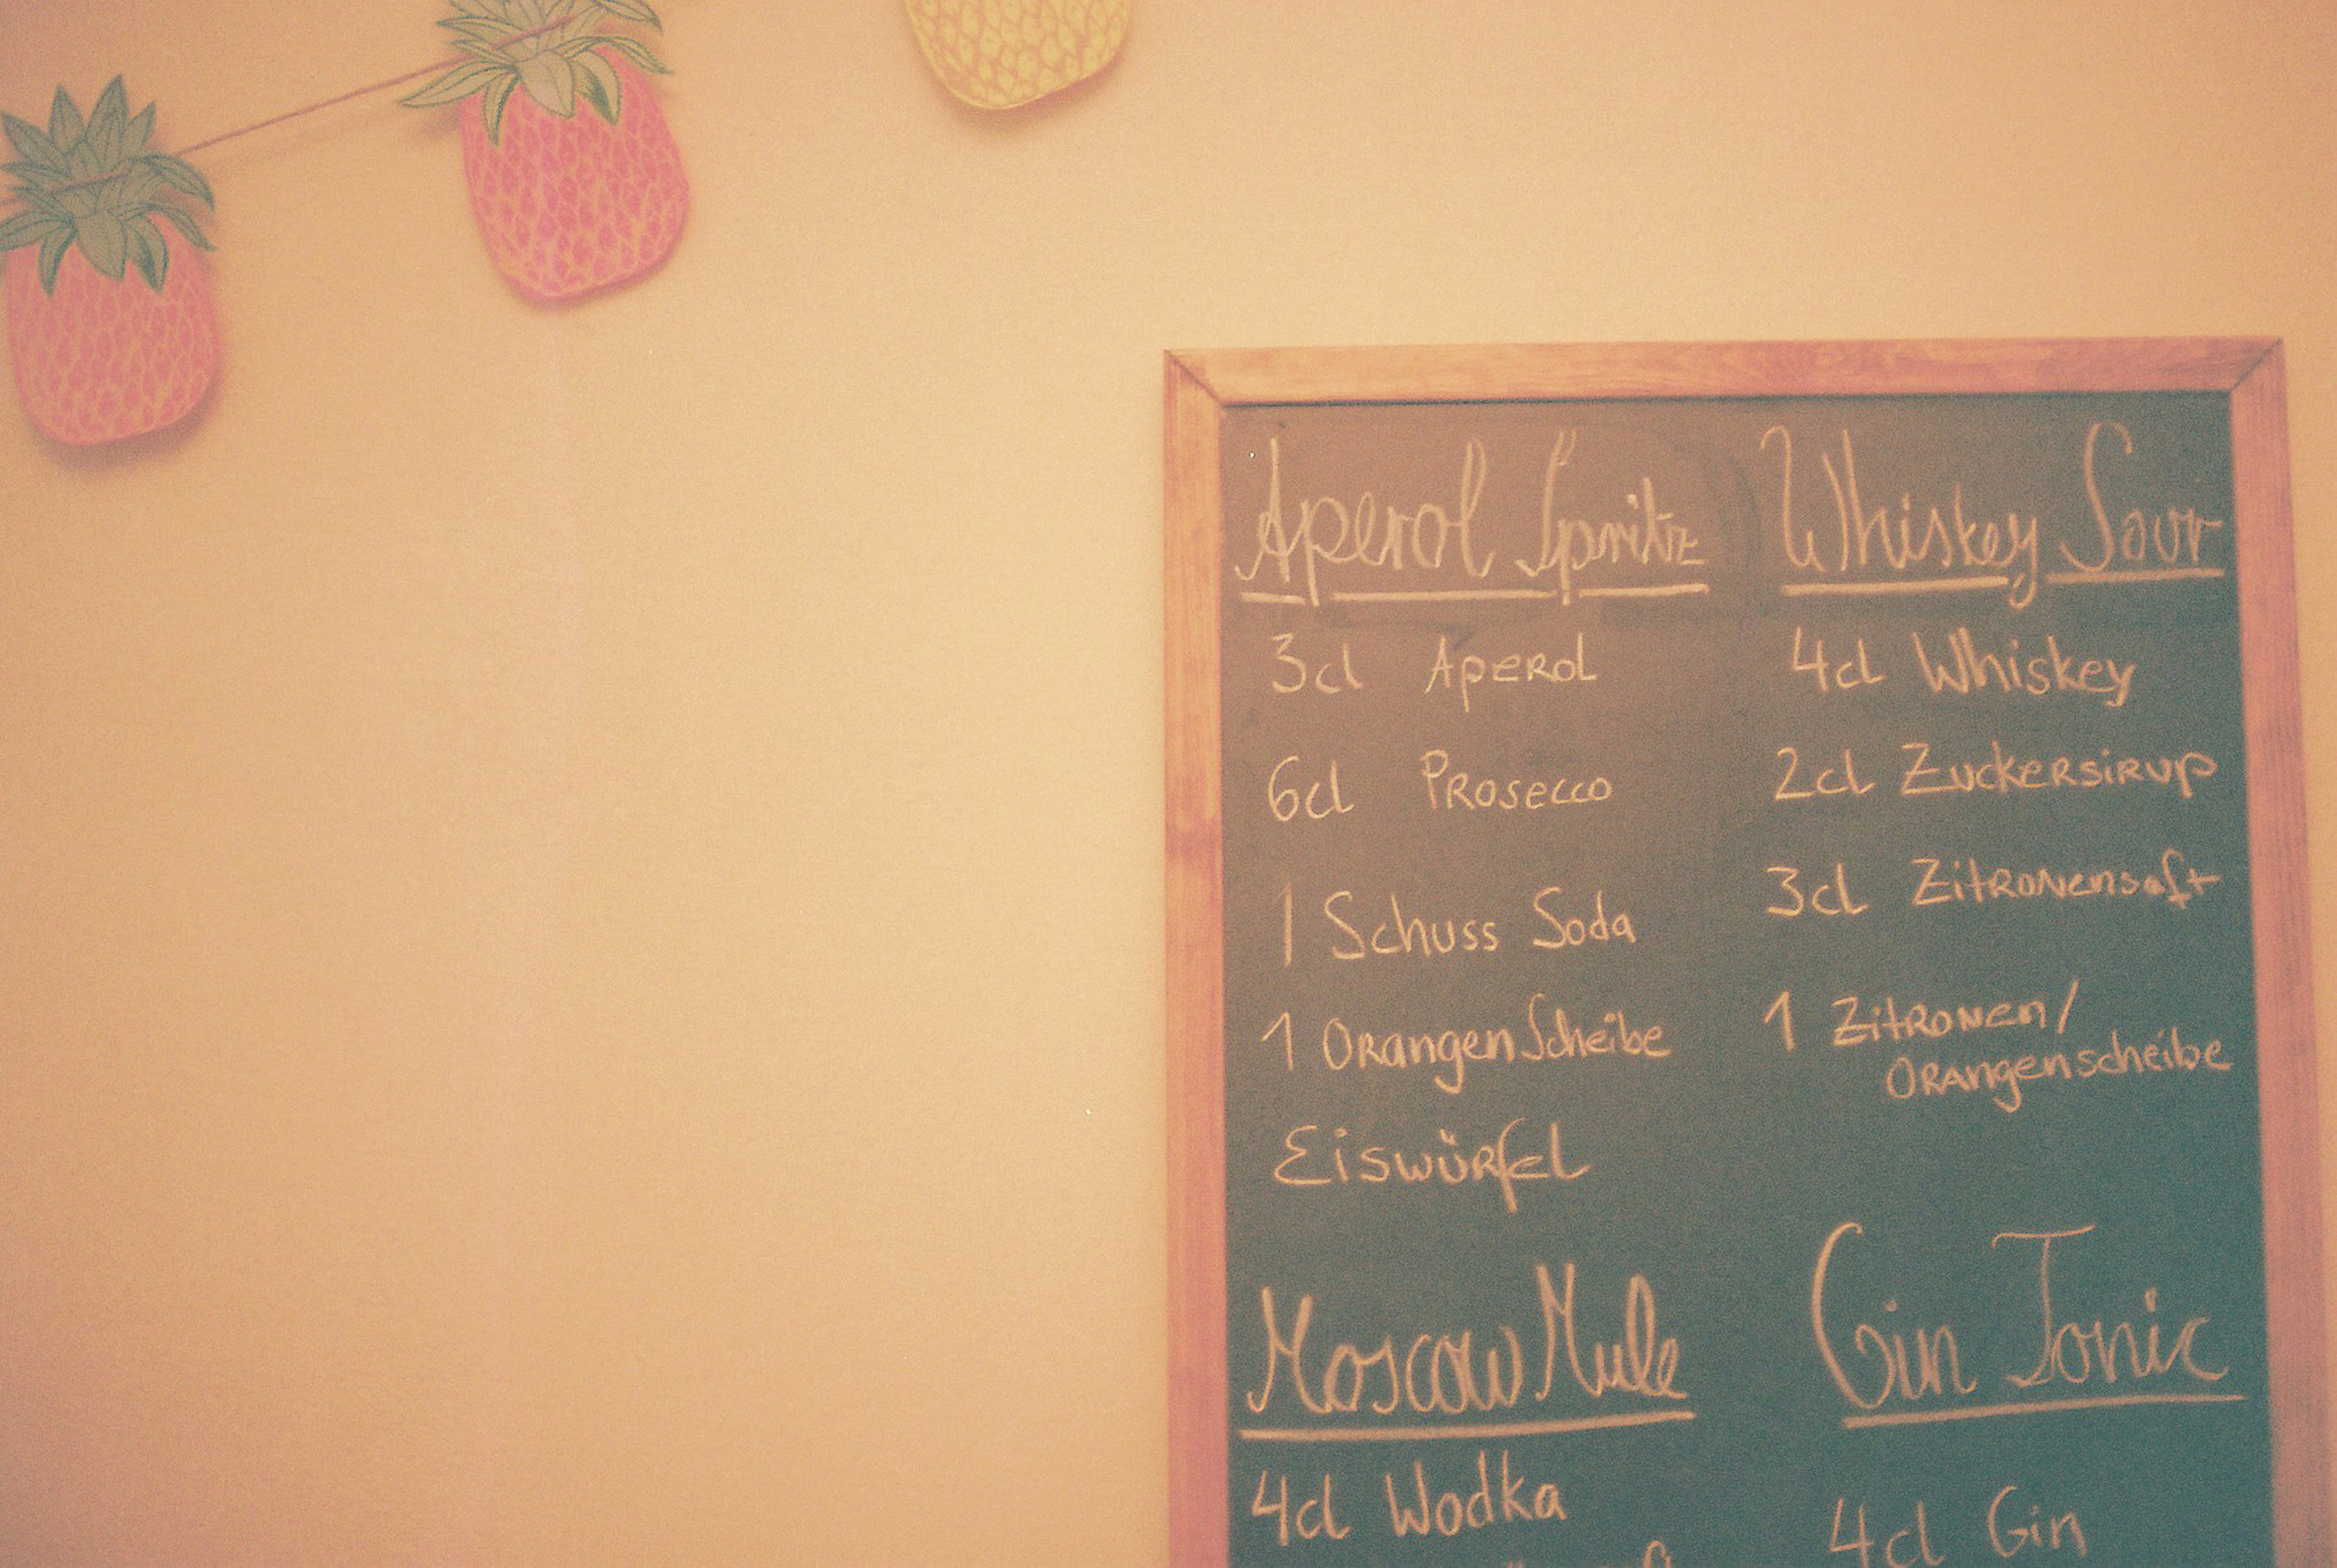 Aperol Spritz
3cl Aperol
6cl Prosecco
1 Schuss Soda
1 Orangenscheibe
Eiswürfel
Whiskey Sour
4cl Whiskey
2cl Zuckersirup
3cl Zitronensaft
1 Zitronen/
Orangenscheibe
Moscow Mule
4cl Wodka
Gin Tonic
4cl Gin